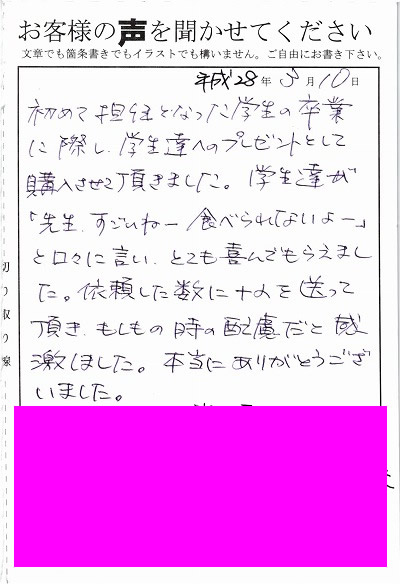 お客様の声を聞かせてください
文章でも箇条書きでもイラストでも構いません。ご自由にお書き下さい。
平成28年3月10日
初めて担任となった学生の卒業
に際し、学生達へのプレゼントとして
購入させて頂きました。学生達が
「先生、すごいねー食べられないよー」
と口々に言い、とても喜んでもらえまし
た。依頼した数に+αを送って
頂き、もしもの時の配慮だと感
激しました。本当にありがとうござ
いました。
切り取り線